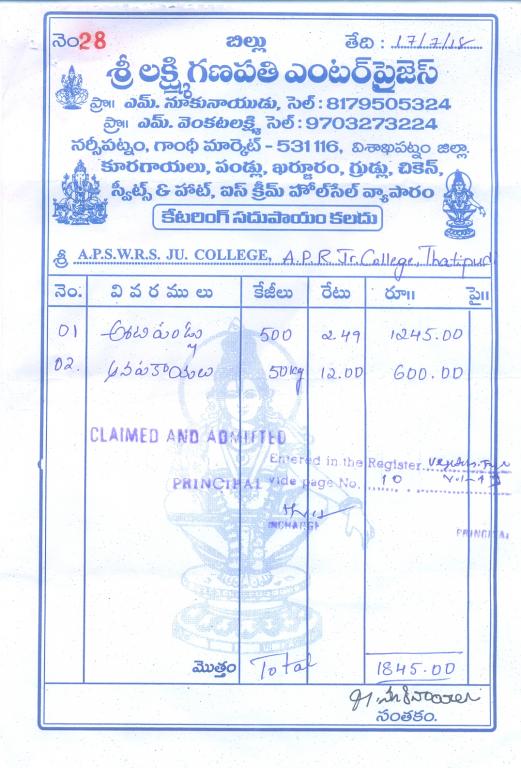 నెం28 బిల్లు తేది : 17/7/18
శ్రీ లక్ష్మి గణపతి ఎంటర్‌ప్రైజెస్
ప్రొ॥ ఎమ్. నూకునాయుడు, సెల్ : 8179505324
ప్రొ॥ ఎమ్. వెంకటలక్ష్మి సెల్ : 9703273224
నర్సీపట్నం, గాంధీ మార్కెట్ - 531116, విశాఖపట్నం జిల్లా.
కూరగాయలు, పండ్లు, ఖర్జూరం, గ్రుడ్లు, చికెన్,
స్వీట్స్ & హాట్, ఐస్ క్రీమ్ హోల్‌సేల్ వ్యాపారం
కేటరింగ్ సదుపాయం కలదు
శ్రీ A.P.S.W.R.S. JU. COLLEGE, A.P.R Jr. College, Thatipudi
నెం. వివరములు కేజీలు రేటు రూ॥ పై॥
01 అరటిపండ్లు 500 2.49 1245.00
02. ఆనపకాయలు 50kg 12.00 600.00
CLAIMED AND ADMITTED
Entered in the Register
PRINCIPAL vide page No. 10
INCHARGE
PRINCIPAL
మొత్తం Total 1845.00
సంతకం.